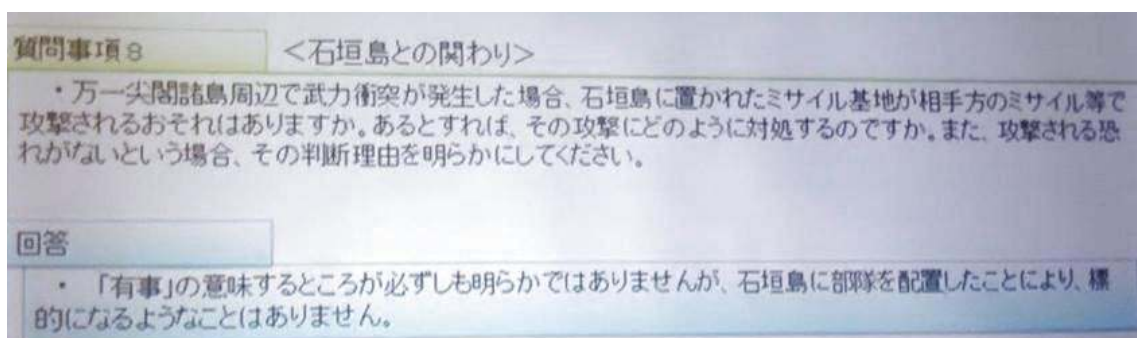 質問事項8 <石垣島との関わり>
・万一尖閣諸島周辺で武力衝突が発生した場合、石垣島に置かれたミサイル基地が相手方のミサイル等で
攻撃されるおそれはありますか。あるとすれば、その攻撃にどのように対処するのですか。また、攻撃される恐
れがないという場合、その判断理由を明らかにしてください。
回答
・ 「有事」の意味するところが必ずしも明らかではありませんが、石垣島に部隊を配置したことにより、標
的になるようなことはありません。